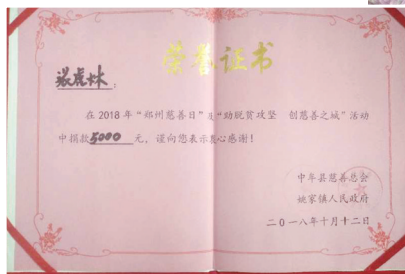 荣誉证书
梁虎林：
在2018年“郑州慈善日”及“助脱贫攻坚 创慈善之城”活动
中捐款5000元，谨向您表示衷心感谢！
中牟县慈善总会
姚家镇人民政府
二〇一八年十月十二日